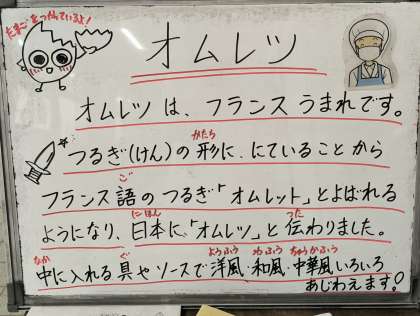 たまごをつかっているよ！
オムレツ
オムレツは、フランスうまれです。
つるぎ(けん)の形に、にていることから
かたち
フランス語のつるぎ「オムレット」とよばれる
ご
ようになり、日本に、「オムレツ」と伝わりました。
にほん
つた
中に入れる具やソースで洋風・和風・中華風いろいろ
なか
ぐ
ようふう
わふう
ちゅうかふう
あじわえます。